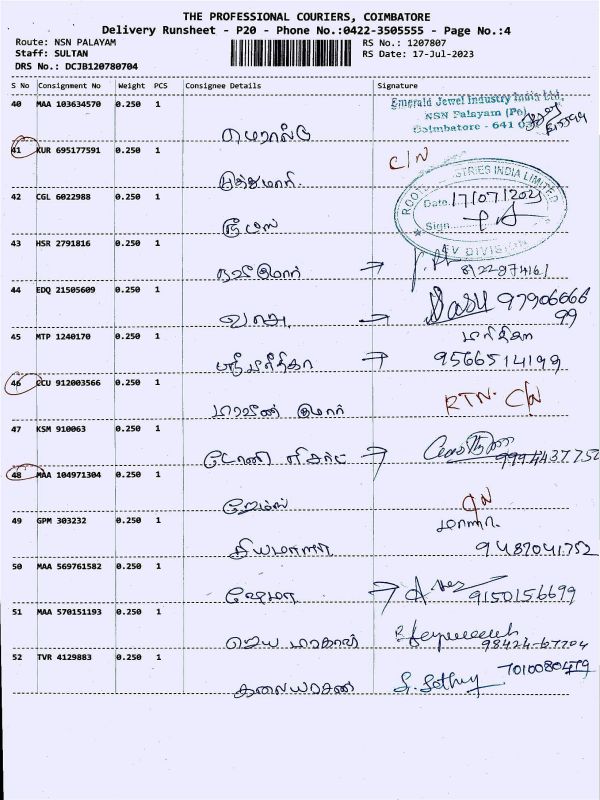 THE PROFESSIONAL COURIERS, COIMBATORE
Delivery Runsheet - P20 - Phone No.:0422-3505555 - Page No.:4
Route: NSN PALAYAM RS No.: 1207807
Staff: SULTAN RS Date: 17-Jul-2023
DRS No.: DCJB120780704
S No Consignment No Weight PCS Consignee Details Signature
40 MAA 103634570 0.250 1
Emerald Jewel Industry India Ltd,
NSN Palayam (Po),
Coimbatore - 641 031
41 KUR 695177591 0.250 1
C/N
முத்துமாரி.
42 CGL 6022988 0.250 1
ROOTS INDUSTRIES INDIA LIMITED
Date 17/07/2023
Sign
DIVISION
43 HSR 2791816 0.250 1
நவீன்குமார் → 8122874161
44 EDQ 21505609 0.250 1
வாசு → Vasu 97906666
99
45 MTP 1240170 0.250 1
ஸ்ரீ ஹரிதிகா → 9566514199
46 CCU 912003566 0.250 1
RTN. C/N
பிரவீன் குமார்
47 KSM 910063 0.250 1
→ 9994437752
48 MAA 104971304 0.250 1
C/N
ஜேம்ஸ்
49 GPM 303232 0.250 1
9487041752
50 MAA 569761582 0.250 1
ஹேமா → 9150156699
51 MAA 570151193 0.250 1
ஜெய பிரகாஷ்
98424-67704
52 TVR 4129883 0.250 1
7010080479
கலையரசன்